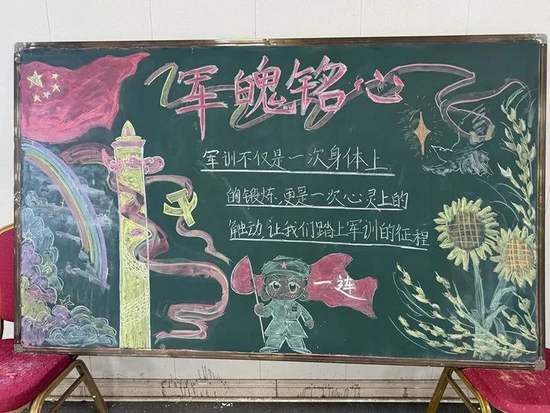 军魄铭心
军训不仅是一次身体上
的锻炼,更是一次心灵上的
触动,让我们踏上军训的征程
一连